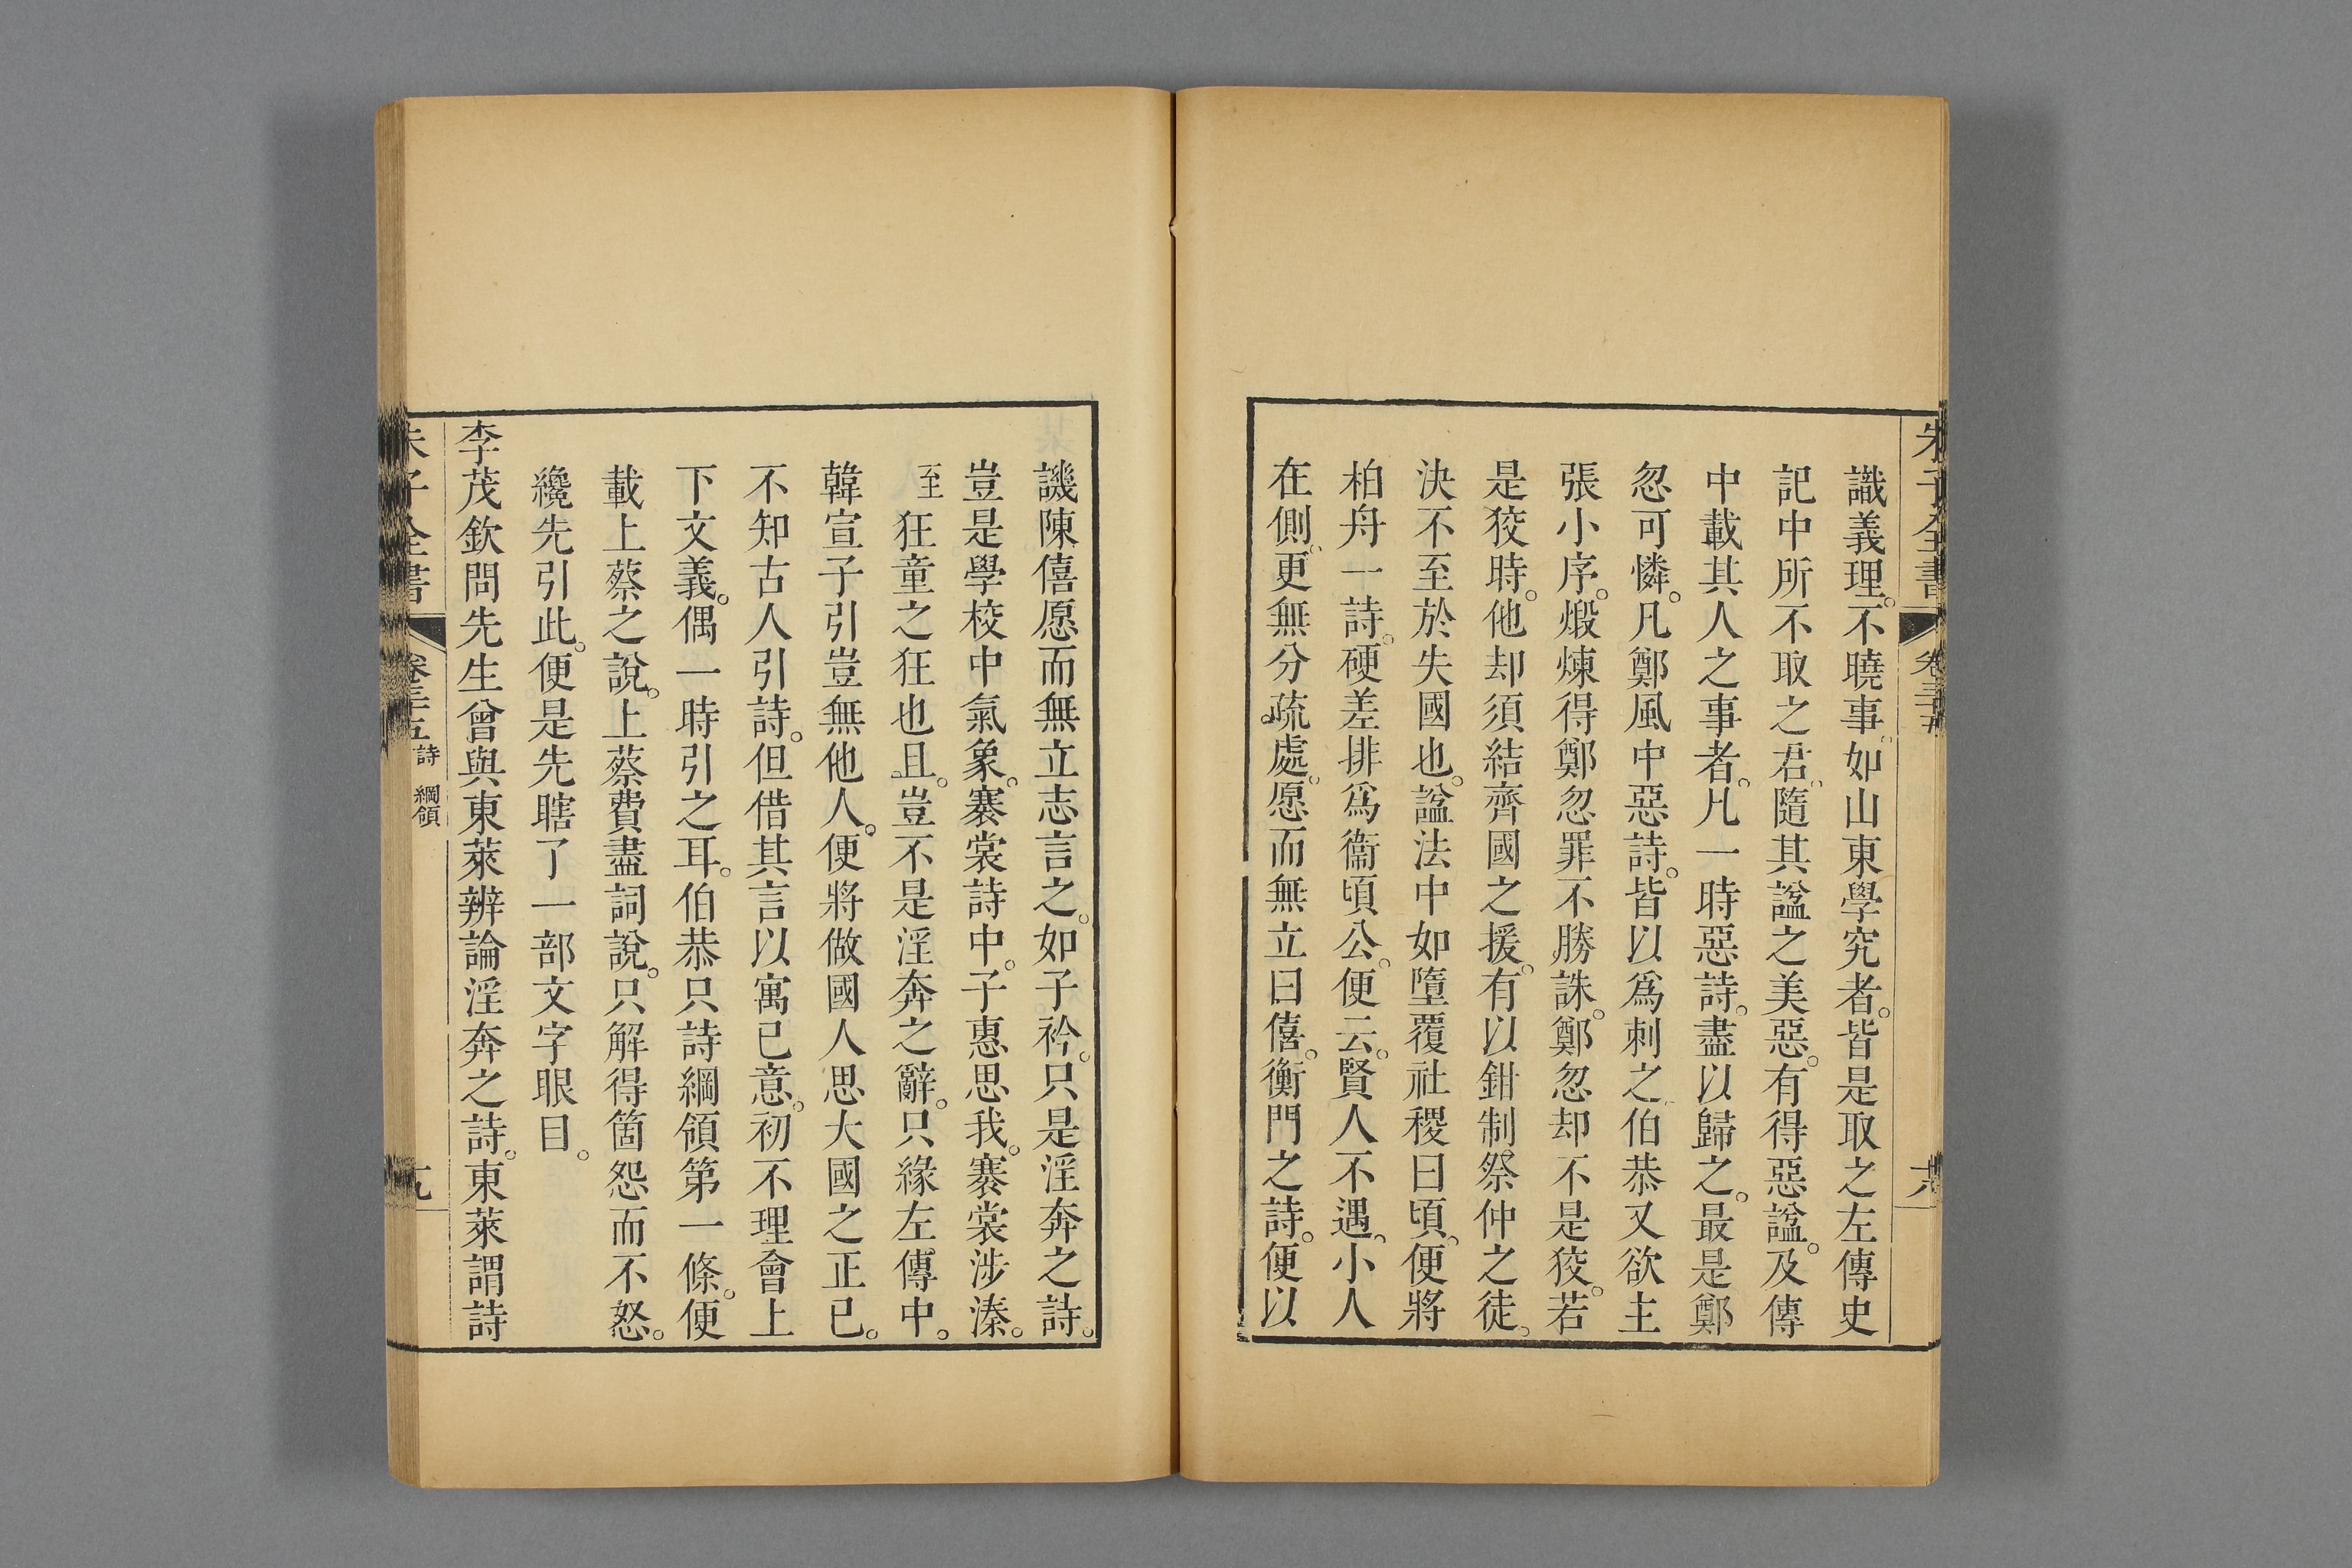 朱子全書 卷三十五 十八
識義理。不曉事。如山東學究者。皆是取之左傳史
記中所不取之君。隨其諡之美惡。有得惡諡。及傳
中載其人之事者。凡一時惡詩。盡以歸之。最是鄭
忽可憐。凡鄭風中惡詩。皆以爲刺之伯恭又欲主
張小序。煅煉得鄭忽罪不勝誅。鄭忽却不是狡。若
是狡時。他却須結齊國之援。有以鉗制祭仲之徒。
決不至於失國也。諡法中如墮覆社稷曰頃。便將
柏舟一詩。硬差排爲衞頃公。便云。賢人不遇。小人
在側。更無分疏。處。愿而無立曰僖。衡門之詩。便以
譏陳僖愿而無立志言之。如子衿。只是淫奔之詩。
豈是學校中氣象。褰裳詩中。子惠思我。褰裳涉溱。
至狂童之狂也且。豈不是淫奔之辭。只緣左傳中。
韓宣子引豈無他人。便將做國人思大國之正已。
不知古人引詩。但借其言以寓已意。初不理會上
下文義。偶一時引之耳。伯恭只詩綱領第一條。便
載上蔡之說。上蔡費盡詞說。只解得箇怨而不怒。
纔先引此。便是先瞎了一部文字眼目。
李茂欽問先生曾與東萊辨論淫奔之詩。東萊謂詩
朱子全書 卷三十五 詩 綱領 十九